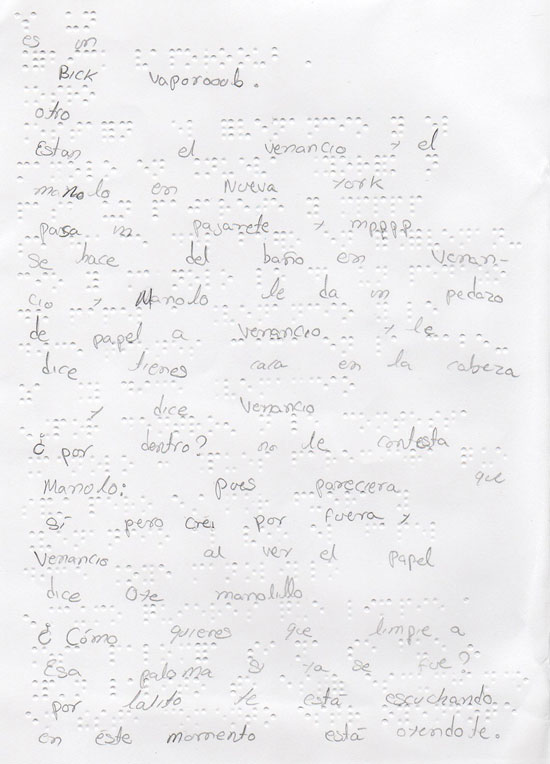 es un
Bick vaporooub.
otro
Estan el venancio y el
manolo en Nueva York
pasa un pajarete y mpppp
se hace del baño en Venan-
cio y Manolo le da un pedazo
de papel a venancio y le
dice tienes caca en la cabeza
y dice Venancio
¿ por dentro? no le contesta
Manolo: pues pareciera que
si pero creí por fuera y
Venancio al ver el papel
dice Oye manolillo
¿ Cómo quieres que limpie a
Esa paloma si ya se fue?
por lalito te está escuchando
en este momento está oyendote.